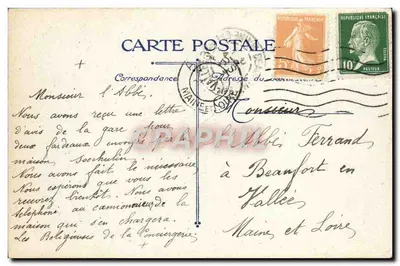 CARTE POSTALE
RÉPUBLIQUE FRANÇAISE
RÉPUBLIQUE FRANÇAISE
10c
PASTEUR
Correspondance
Adresse du
MAINE ET LOIRE
Monsieur l'Abbé
Nous avons reçu une lettre
d'avis de la gare pour
deux fardeaux envoi
maison
Nous avons fait le nécessaire
Nous espérons que vous les
recevrez bientôt. Nous avons
téléphoné au camionneur de la
maison qui s'en chargera.
Les Religieuses de la Conciergerie
Monsieur
Abbé Ferrand
à Beaufort en
Vallée
Maine et Loire